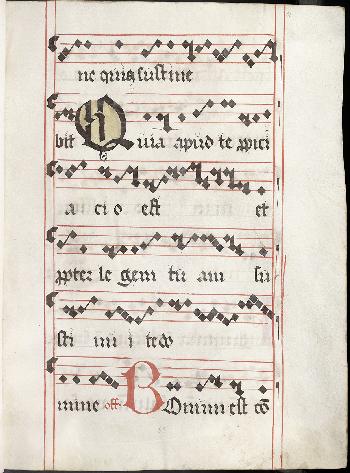 ne quis sustine
bit Quia apud te ꝓpici
a ci o est et
ꝓpter le gem tu am su
sti nu i te dō
mine off. Bonum est cō